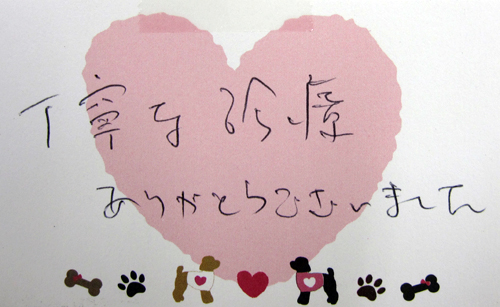 丁寧な診療
ありがとうございました